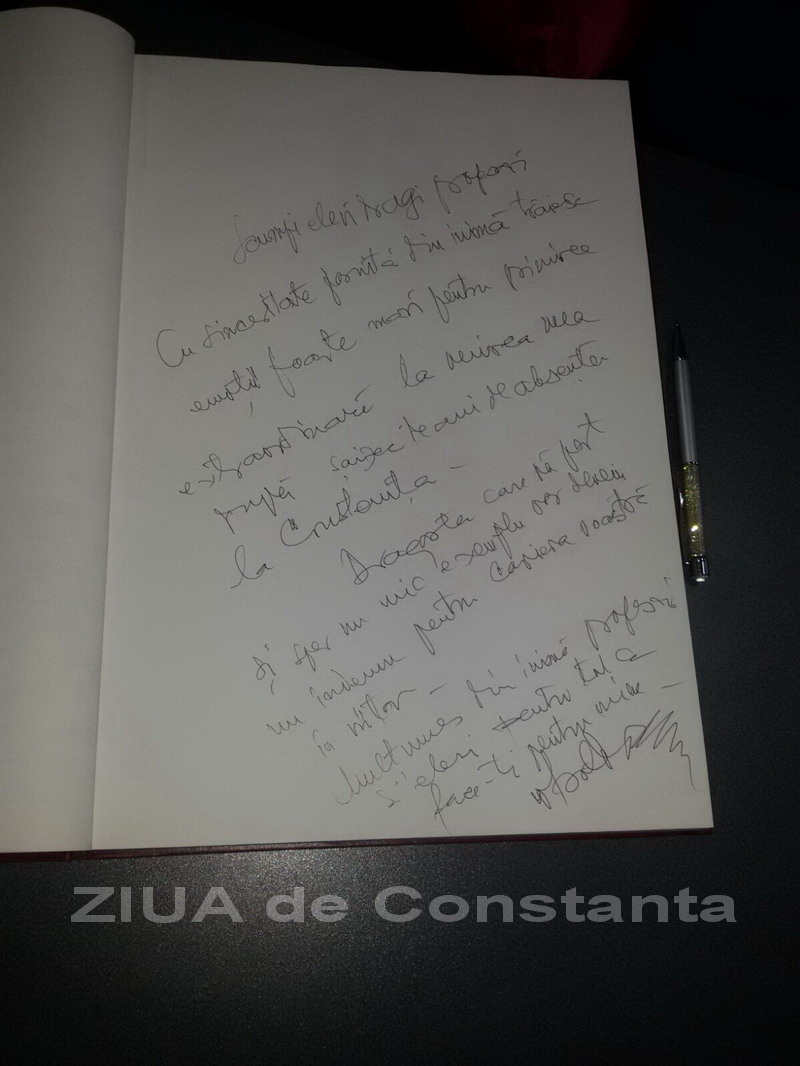 Scumpi elevi dragi profesori
Cu sinceritate pornită din inimă trăiesc
emoții foarte mari pentru primirea
extraordinară la venirea mea
după șaizeci de ani de absență
la Constanța -
Dragostea care vă port
și sper un mic exemplu
un îndemn pentru cariera voastră
în viitor -
Mulțumesc din inimă profesori
și elevi pentru tot ce
faceți pentru mine -
ZIUA de Constanta